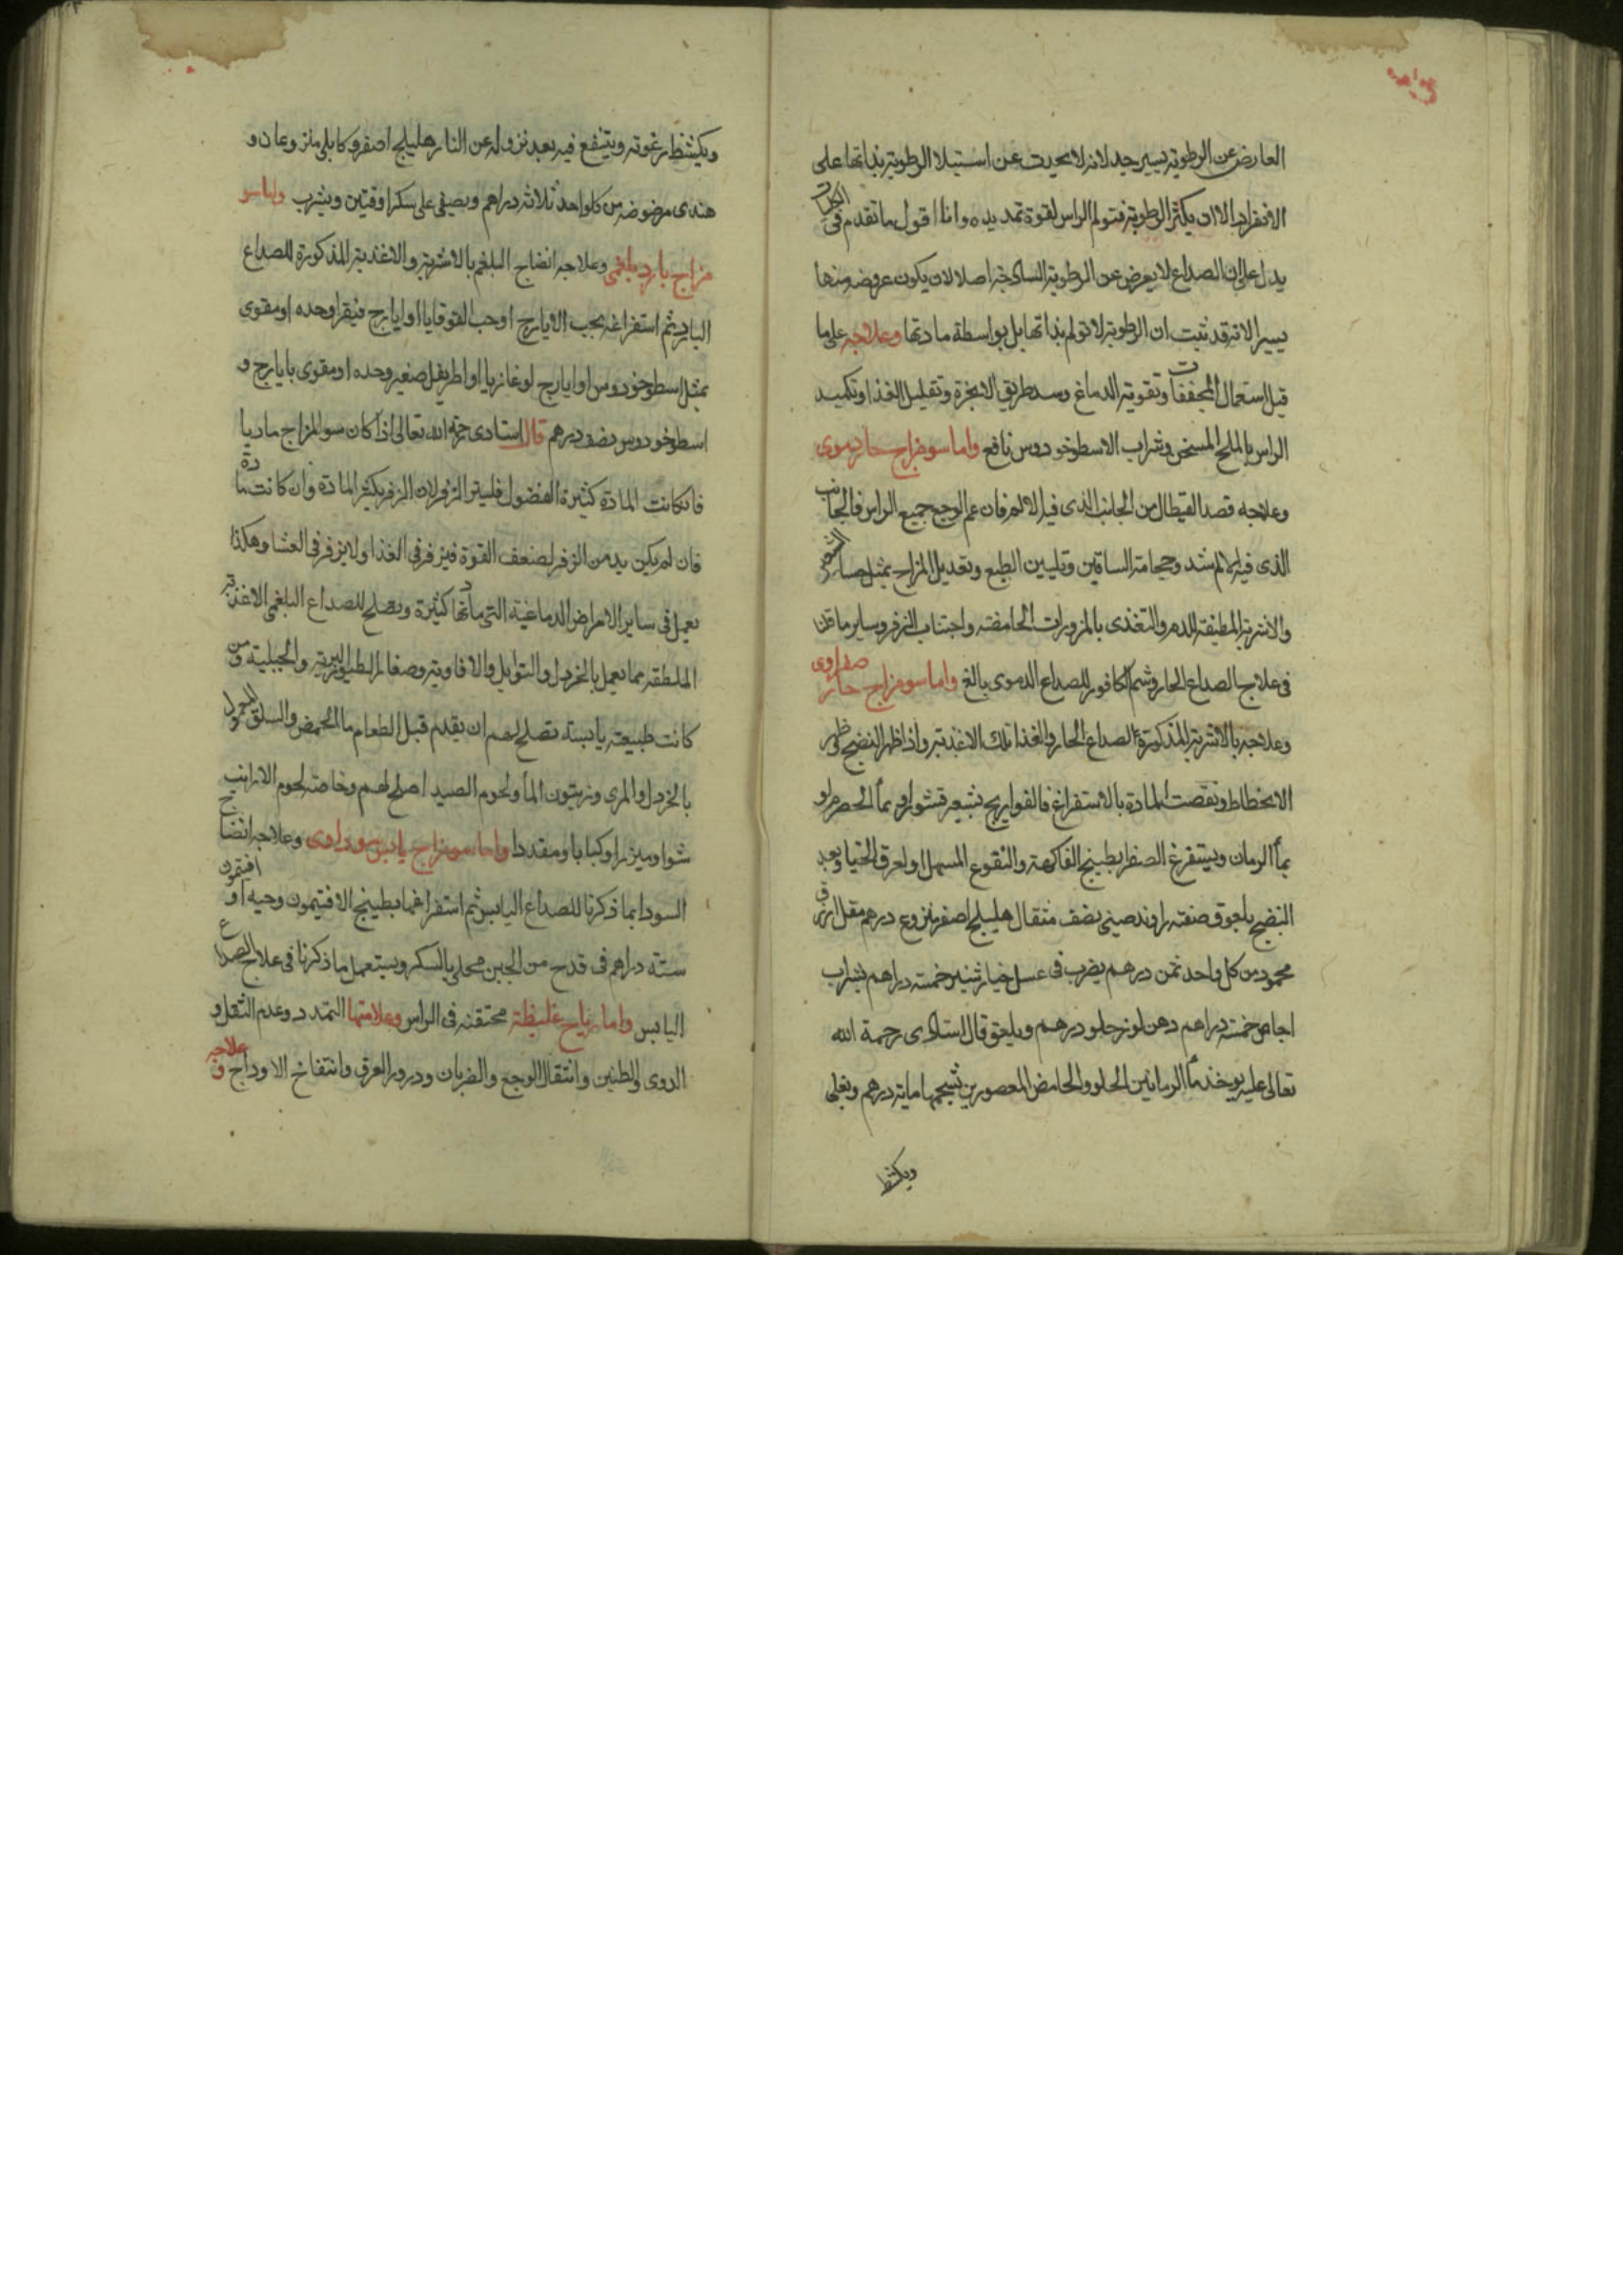 العارض عن الرطوبة يسير جدا لانه لا يحدث عن استيلا الرطوبة بذاتها على
الانفراد الا ان يكثر الرطوبة فتولم الراس لقوة تمديده وانا اقول ما تقدم في
يدل على ان الصداع لا يعرض عن الرطوبة الساذجة اصلا لان يكون عروضه منها
يسيرا لانه قد ثبت ان الرطوبة لا تولم بذاتها بل بواسطة مادتها وعلاجه على ما
قيل استعمال المجففات وتقوية الدماغ وسد طريق الابخرة وتقليل الغذا وتكميد
الراس بالملح المسخن وشراب الاسطوخودوس نافع واما سو مزاج حار دموى
وعلاجه فصد القيفال من الجانب الذى فيه الالم فان عم الوجع جميع الراس فالجانب
الذى فيه الالم اشد وحجامة الساقين وتليين الطبع وتعديل المزاج بمثل حسا الشعير
والاشربة المطفئة للدم والتغذى بالمزورات الحامضة واجتناب الزفر وساير ما قلنا
فى علاج الصداع الحار وشم الكافور للصداع الدموى بالغ واما سو مزاج حار صفراوى
وعلاجه بالاشربة المذكورة للصداع الحار والغذا تلك الاغذية واذا ظهر النضج ظهر فى
الانحطاط ونقصت المادة بالاستفراغ فالفواريج بشعير قشوا او بمأ الحصرم او
بمأ الرمان ويستفرغ الصفرا بطبيخ الفاكهة والنقوع المسهل او لعوق الخيار وبعد
النضج بلعوق صفته راوند صينى نصف مثقال هليلج اصفر منزوع درهم مقل ازرق
محمود من كل واحد ثمن درهم يضرب فى عسل خيارشنبر خمسة دراهم بشراب
اجاص خمسة دراهم دهن لوز حلو درهم ويلعق قال استادى رحمة الله
تعالى عليه يوخذ مأ الرمانين الحلو والحامض المعصورين بشحمهما ماية درهم ويغلى
ويكشط
ويكشط رغوته وينقع فيه بعد نزوله عن النار هليلج اصفر وكابلى منزوعان و
هندى مرضوضه من كل واحد ثلاثه دراهم ويصفى على سكر اوقيتين ويشرب واما سو
مزاج بارد بلغمى وعلاجه انضاج البلغم بالاشربة والاغذية المذكورة للصداع
البارد ثم استفراغه بحب الايارج او حب القوقايا او ايارج فيقرا وحده او مقوى
بمثل اسطوخودوس او ايارج لوغاذيا او اطريفل صغير وحده او مقوى بايارج و
اسطوخودوس نصف درهم قال استادى رحمة الله تعالى اذا كان سو المزاج ماديا
فان كانت المادة كثيرة الفضول فليترك الزفر لان الزفر يكثر المادة وان كانت مادة
فان لم يكن بد من الزفر لضعف القوة فيزفر فى الغذا ولا يزفر فى العشا وهكذا
نعمل فى ساير الامراض الدماغية التى مادتها كثيرة ويصلح للصداع البلغمى الاغذية
الملطفة مما يعمل بالخردل والتوابل والافاوية وصغار الطيور البرية والجبلية ومن
كانت طبيعته يابسة يصلح لهم ان يقدم قبل الطعام مأ الحمص والسلق
بالخردل والمرى وزيتون المأ ولحوم الصيد اصلح لهم وخاصة لحوم الارانب
شوا وميزرا وكبابا ومقددا واما سو مزاج يابس سوداوى وعلاجه انضاج
السودا بما ذكرنا للصداع اليابس ثم استفراغها بطبيخ الافتيمون وحبه او افتيمون
ستة دراهم فى قدح من الجبن محلى بالسكر ويستعمل ما ذكرنا فى علاج الصداع
اليابس واما رياح غليظة محتقنه فى الراس وعلامتها التمدد وعدم الثقل و
الدوى والطنين وانتقال الوجع والضربان ودرور العرق وانتفاخ الاوداج وعلاجه